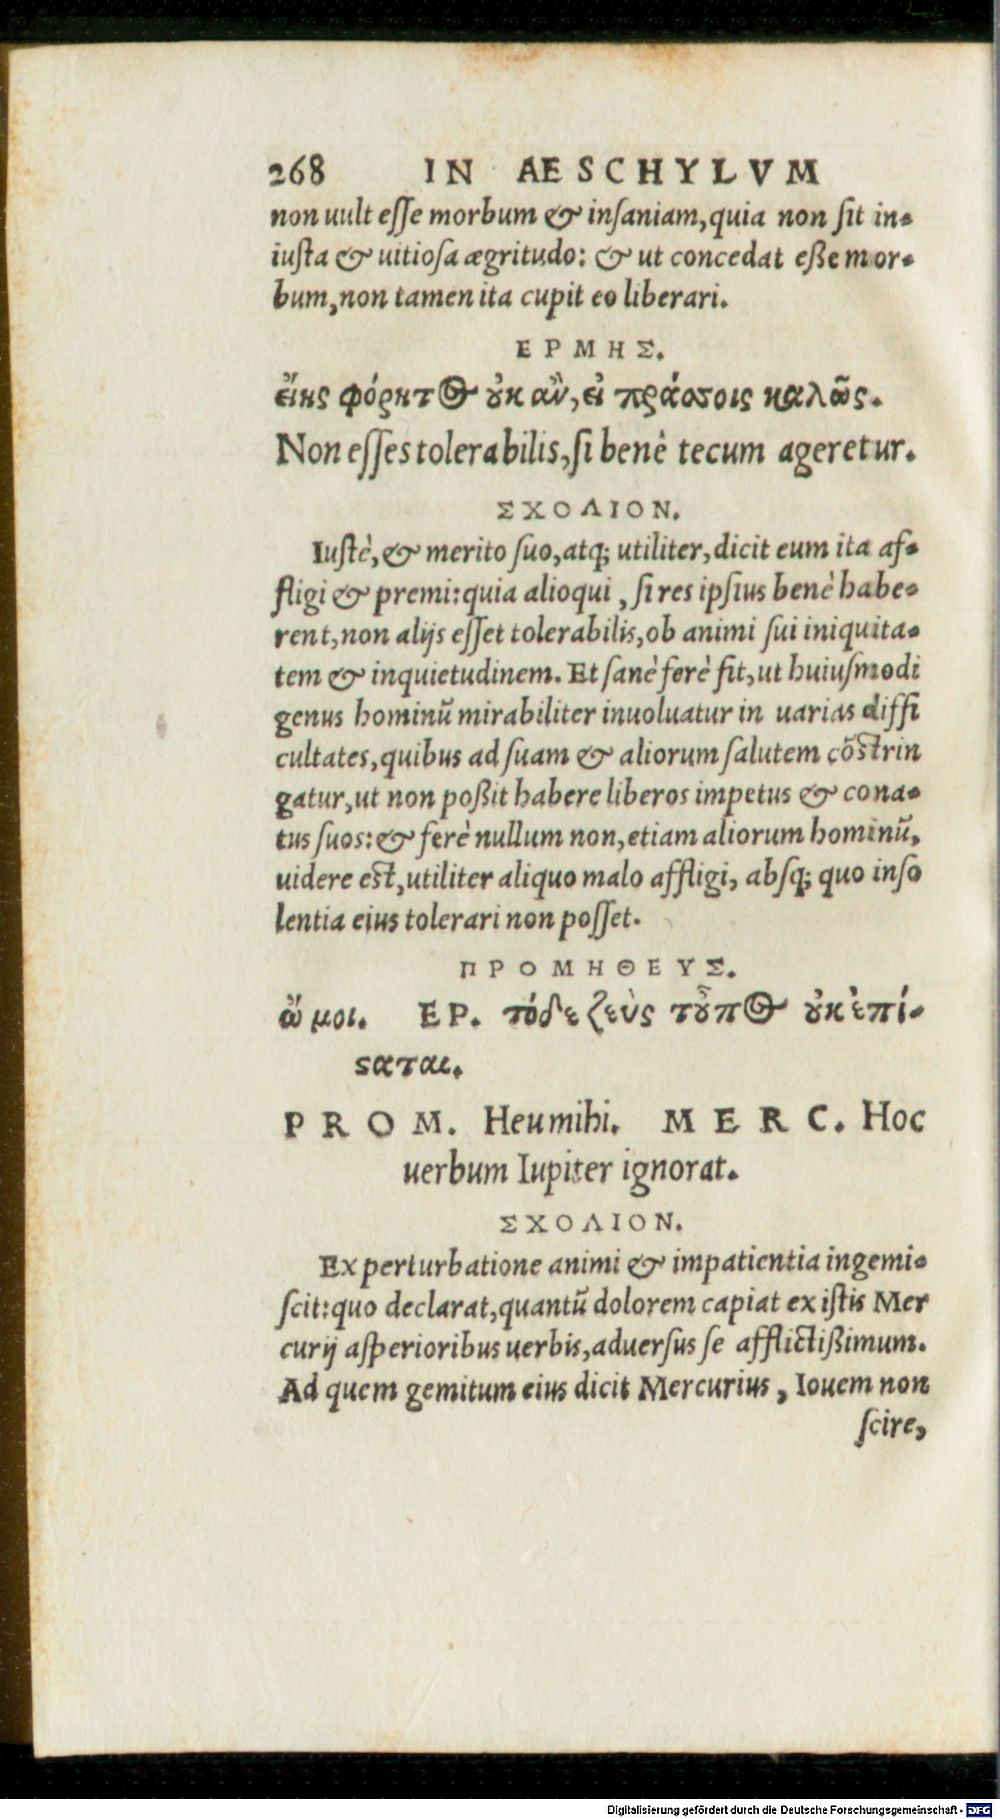 268 IN AESCHYLVM
non uult esse morbum & insaniam, quia non sit in-
iusta & uitiosa ægritudo: & ut concedat eße mor-
bum, non tamen ita cupit eo liberari.
ΕΡΜΗΣ.
εἴης φόρητος οὐκ ἂν, εἰ πράσσοις καλῶς.
Non esses tolerabilis, si benè tecum ageretur.
ΣΧΟΛΙΟΝ.
Iustè, & merito suo, atq; utiliter, dicit eum ita af-
fligi & premi: quia alioqui, si res ipsius benè habe-
rent, non alijs esset tolerabilis, ob animi sui iniquita-
tem & inquietudinem. Et sanè ferè fit, ut huiusmodi
genus hominū mirabiliter inuoluatur in uarias diffi
cultates, quibus ad suam & aliorum salutem cōstrin
gatur, ut non poßit habere liberos impetus & cona-
tus suos: & ferè nullum non, etiam aliorum hominū,
uidere est, utiliter aliquo malo affligi, absq; quo inso
lentia eius tolerari non posset.
ΠΡΟΜΗΘΕΥΣ.
ὤ μοι. ΕΡ. τόδε ζεὺς τοὖπος οὐκ ἐπί-
ςαται.
PROM. Heu mihi. MERC. Hoc
uerbum Iupiter ignorat.
ΣΧΟΛΙΟΝ.
Ex perturbatione animi & impatientia ingemi-
scit: quo declarat, quantū dolorem capiat ex istis Mer
curij asperioribus uerbis, aduersus se afflictißimum.
Ad quem gemitum eius dicit Mercurius, Iouem non
scire,
Digitalisierung gefördert durch die Deutsche Forschungsgemeinschaft - DFG